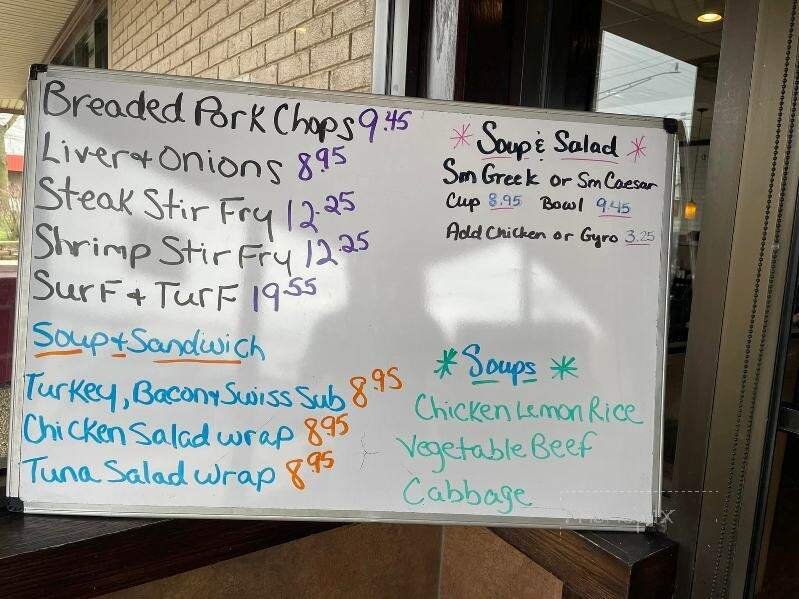 Breaded Pork Chops 9.45
Liver + Onions 8.95
Steak Stir Fry 12.25
Shrimp Stir Fry 12.25
Surf + Turf 19.55
Soup + Sandwich
Turkey, Bacon + Swiss Sub 8.95
Chicken Salad wrap 8.95
Tuna Salad wrap 8.95
* Soup & Salad *
Sm Greek or Sm Caesar
Cup 8.95 Bowl 9.45
Add Chicken or Gyro 3.25
* Soups *
Chicken Lemon Rice
Vegetable Beef
Cabbage